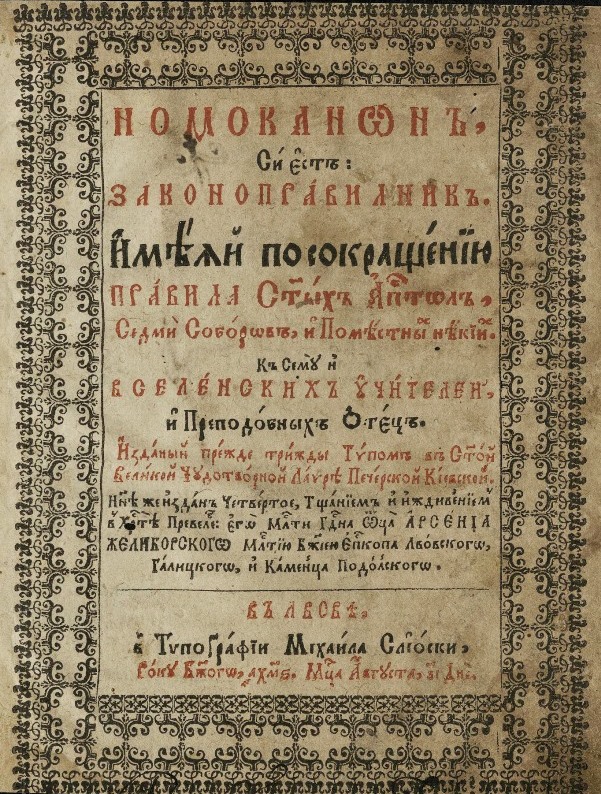 НОМОКАНѠНЪ,
Сѝ є҆стъ:
ЗАКОНОПРА́ВИЛНИКЪ.
И҆мѣ́ѧй посокраще́нїю
ПРА́ВИЛА Ст҃ы́хъ А҆пⷭ҇толъ,
Седмѝ Собо́рѡвъ, и҆ Помѣ́стныⷯ нѣ́кїиⷯ.
Къ Семꙋ̀ и҆
ВСЕЛЕ́НСКИХЪ Оу҆чи́телей,
и҆ Преподо́бныхъ Ѻ҆те́цъ.
И҆зда́ный пре́жде три́жды Тѵ́помъ въ Ст҃о́й
Вели́кой Чꙋдотво́рной Ла́ѵрѣ Пече́рской Кі́евской.
Нн҃ѣ же и҆зда́нъ Четве́ртое, Тща́нїемъ и҆ и҆ждиве́нїемъ
в Хрⷭ҇тѣ̀ Превеле: є҆гѡ̀ Мл҃ти Гдⷭ҇на Ѻ҆ц҃а АРСЕ́НІА
ЖЕЛИБОРСКОГѠ Мл҃тїю Бж҃їею Єп҆кⷭ҇опа Льво́вскогѡ,
Га́лицкогѡ, и҆ Ка́менца Подо́лскогѡ.
ВЪ ЛВО́ВѢ,
в Тѵпогра́фїи Мїхаи́ла Сліоски,
Ро́кꙋ Бж҃огѡ, ҂ахм҃ѕ. Мцⷭ҇а А҆́вгꙋста,